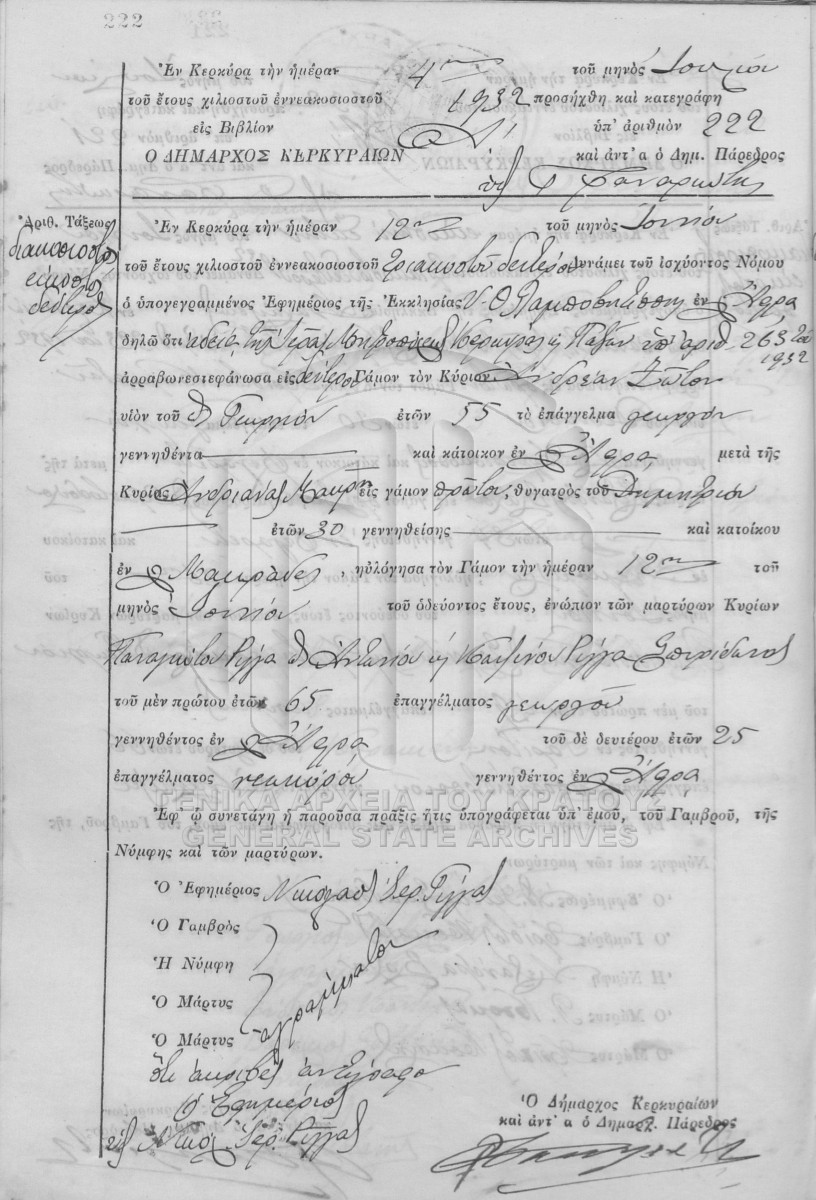 222
Ἐν Κερκύρᾳ τὴν ἡμέραν 4ην τοῦ μηνὸς Ἰουλίου
τοῦ ἔτους χιλιοστοῦ ἐννεακοσιοστοῦ 1932 προσήχθη καὶ κατεγράφη
εἰς Βιβλίον Α' ὑπ' ἀριθμὸν 222
Ο ΔΗΜΑΡΧΟΣ ΚΕΡΚΥΡΑΙΩΝ καὶ ἀντ' α ὁ Δημ. Πάρεδρος
Ἀριθ. Τάξεως
διακοσιοστὸν
εἰκοστὸν
δεύτερον
Ἐν Κερκύρᾳ τὴν ἡμέραν 12ην τοῦ μηνὸς Ἰουνίου
τοῦ ἔτους χιλιοστοῦ ἐννεακοσιοστοῦ τριακοστοῦ δευτέρου δυνάμει τοῦ ἰσχύοντος Νόμου
ὁ ὑπογεγραμμένος Ἐφημέριος τῆς Ἐκκλησίας Υ. Θ. ἐν Ἀλρᾷ
δηλῶ ὅτι ἀδείᾳ τῆς Ἱερᾶς Μητροπόλεως Κερκύρας κ Παξῶν ὑπ' ἀριθ. 263 τοῦ
1932
ἀρραβωνεστεφάνωσα εἰς δεύτερον Γάμον τὸν Κύριον Ἀνδρέαν
υἱὸν τοῦ Γεωργίου ἐτῶν 55 τὸ ἐπάγγελμα γεωργὸν
γεννηθέντα καὶ κάτοικον ἐν μετὰ τῆς
Κυρίας Ἀνδριάνας Μακρῆ εἰς γάμον πρῶτον, θυγατρὸς τοῦ Δημητρίου
ἐτῶν 30 γεννηθείσης καὶ κατοίκου
ἐν Μακράδες, ηὐλόγησα τὸν Γάμον τὴν ἡμέραν 12ην τοῦ
μηνὸς Ἰουνίου τοῦ ὁδεύοντος ἔτους, ἐνώπιον τῶν μαρτύρων Κυρίων
Παναγιώτου Ρίγγα Ἀντωνίου κ Ρίγγα Σπυρίδωνος
τοῦ μὲν πρώτου ἐτῶν 65 ἐπαγγέλματος γεωργοῦ
γεννηθέντος ἐν τοῦ δὲ δευτέρου ἐτῶν 25
ἐπαγγέλματος νεωκόρου γεννηθέντος ἐν
ΓΕΝΙΚΑ ΑΡΧΕΙΑ ΤΟΥ ΚΡΑΤΟΥΣ
Ἐφ' ᾧ συνετάγη ἡ παροῦσα πρᾶξις ἥτις ὑπογράφεται ὑπ' ἐμοῦ, τοῦ Γαμβροῦ, τῆς
GENERAL STATE ARCHIVES
Νύμφης καὶ τῶν μαρτύρων.
Ὁ Ἐφημέριος Νικόλαος Ἱερ. Ρίγγας
Ὁ Γαμβρὸς
Ἡ Νύμφη
Ὁ Μάρτυς
Ὁ Μάρτυς ἀγράμματοι
Ὅτι ἀκριβὲς ἀντίγραφον
Ὁ Ἐφημέριος
Νικόλ. Ἱερ. Ρίγγας
Ὁ Δήμαρχος Κερκυραίων
καὶ ἀντ' α ὁ Δημαρχ. Πάρεδρος